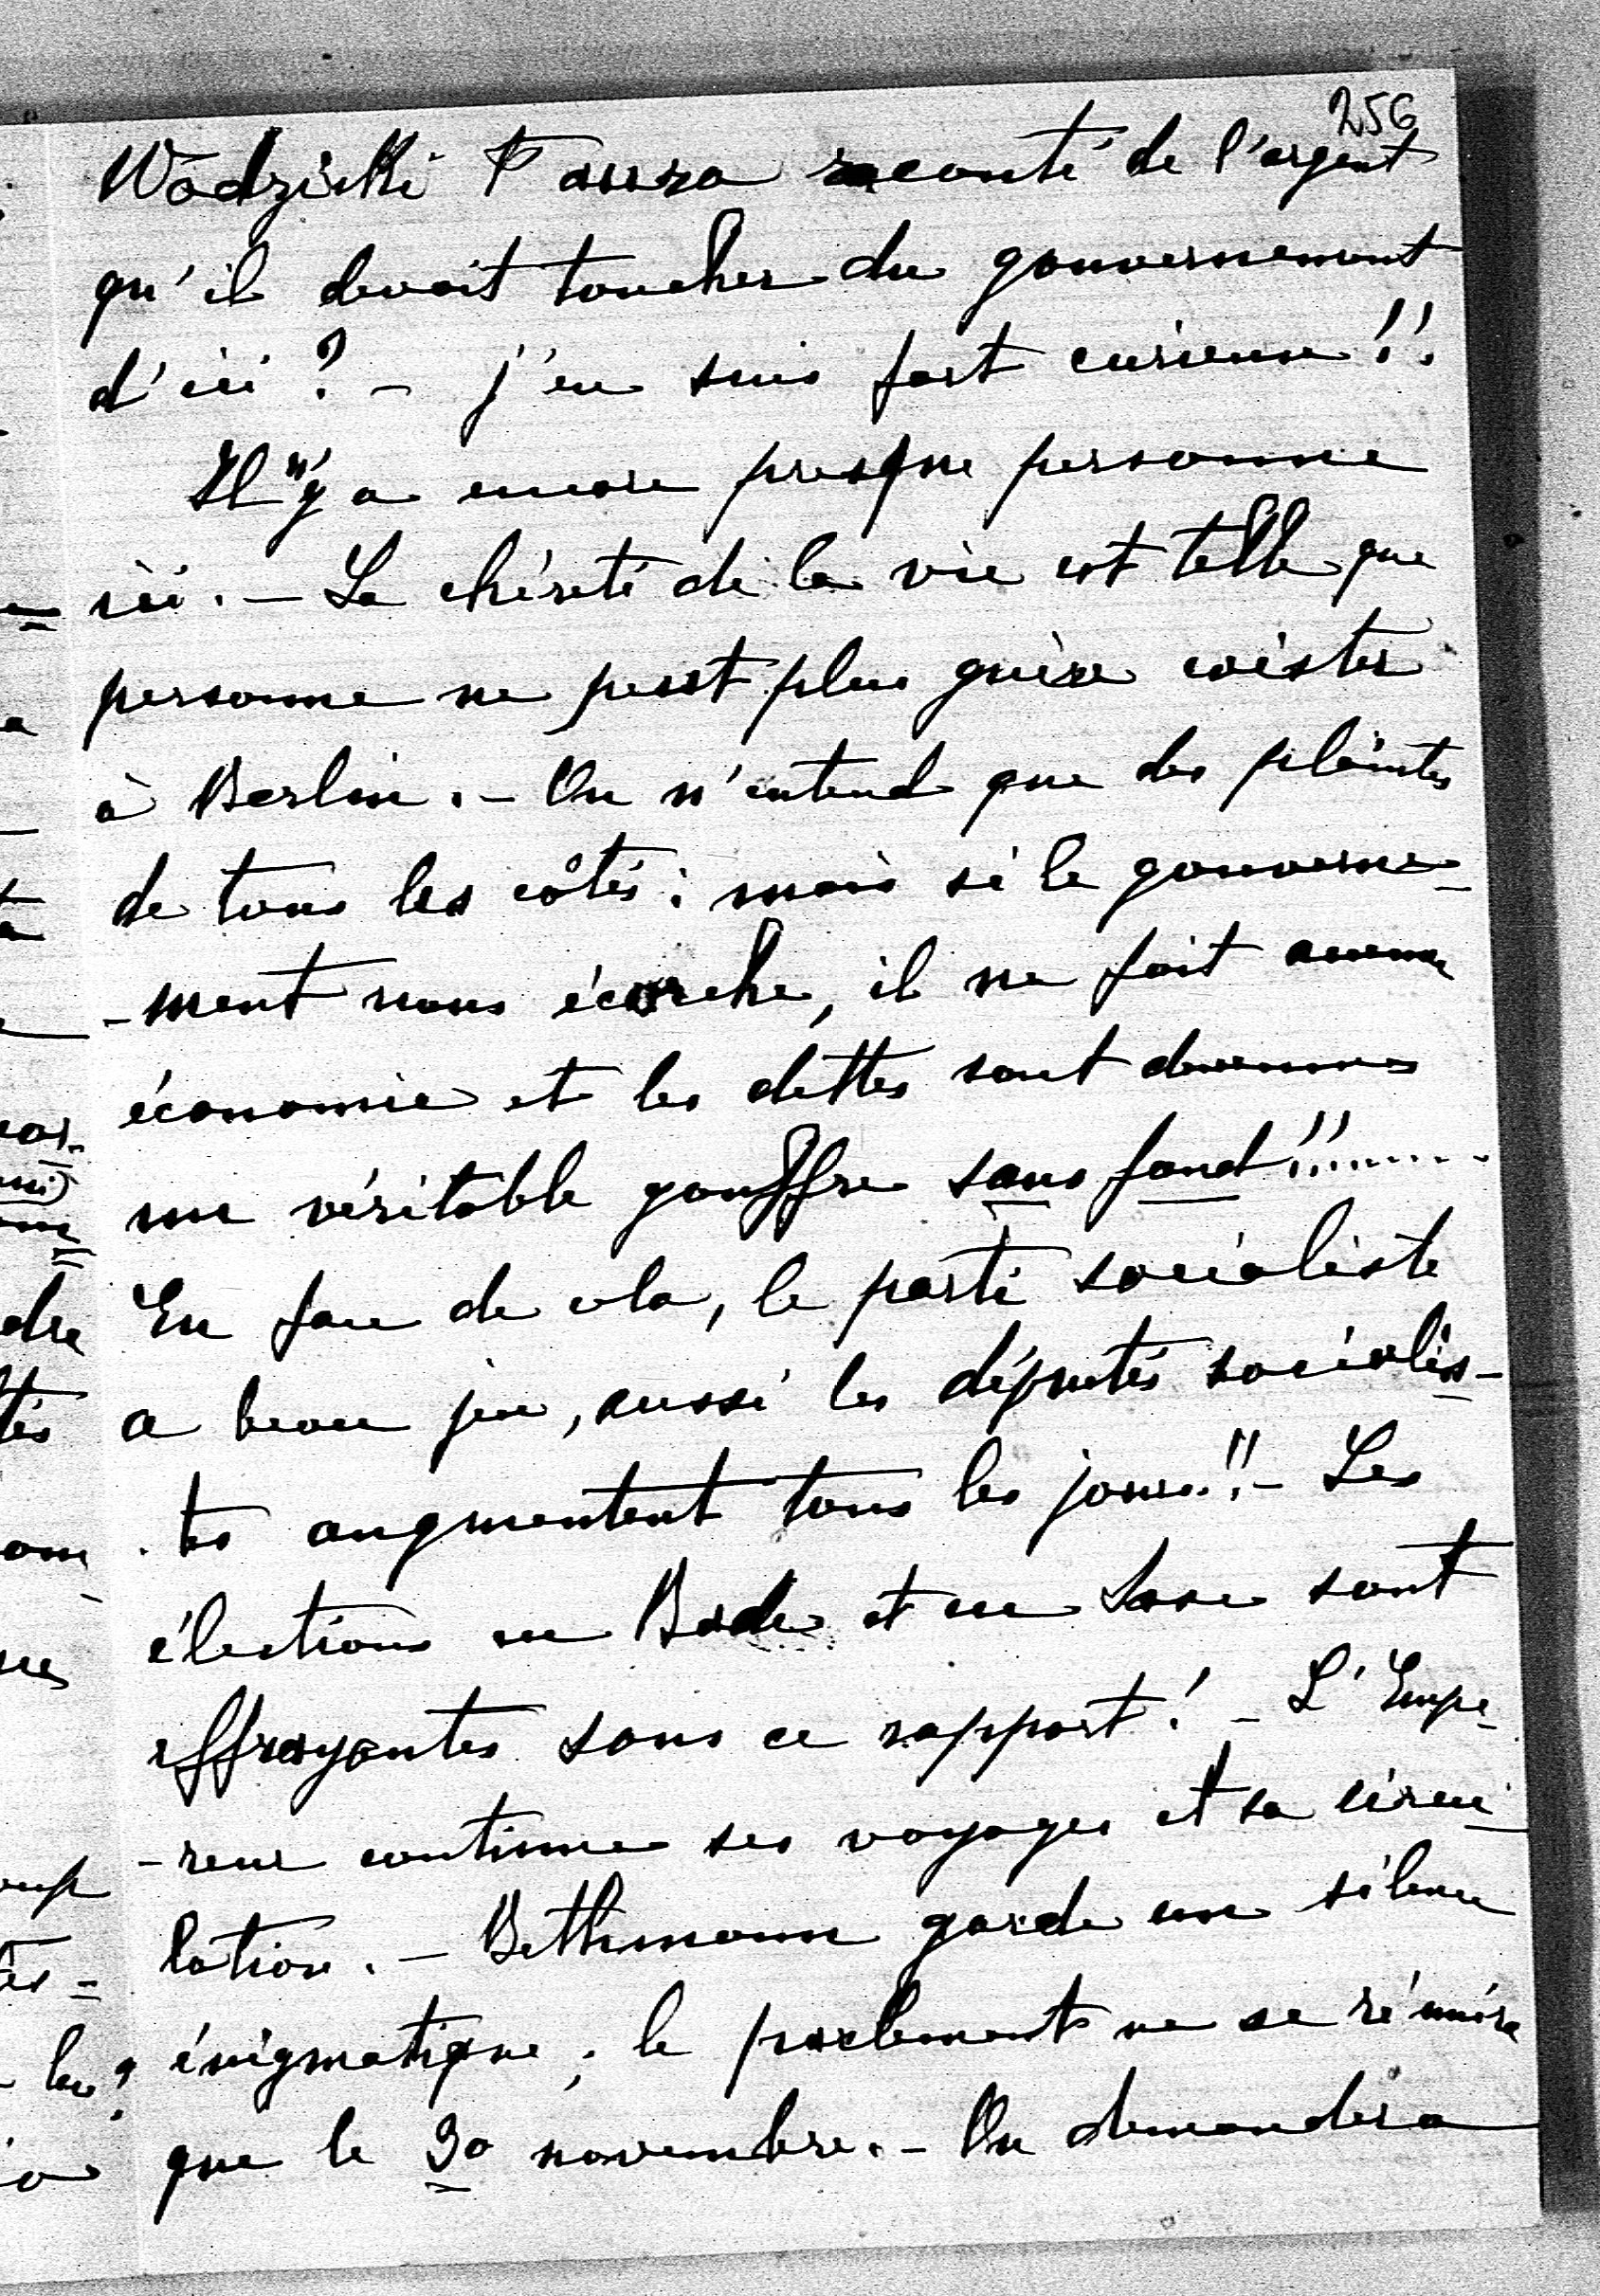 256
Wodzicki t'aura raconté de l'argent
qu'il devait toucher du gouvernement
d'ici ? – j'en suis fort curieuse !!
Il n'y a encore presque personne
ici. – La chèreté de la vie est telle que
personne ne peut plus guère exister
à Berlin. – On n'entend que des plaintes
de tous les côtés : mais si le gouverne-
-ment nous écorche, il ne fait aucune
économie et les dettes sont devenues
un véritable gouffre sans fond !!.........
En face de cela, le parti socialiste
a beau jeu, aussi les députés socialis-
tes augmentent tous les jours !! – Les
élections en Bade et en Saxe sont
effrayantes sous ce rapport ! – L'Empe-
-reur continue ses voyages et sa circu-
lation. – Bethmann garde un silence
énigmatique ; le parlement ne se réunira
que le 30 novembre. – On demandera